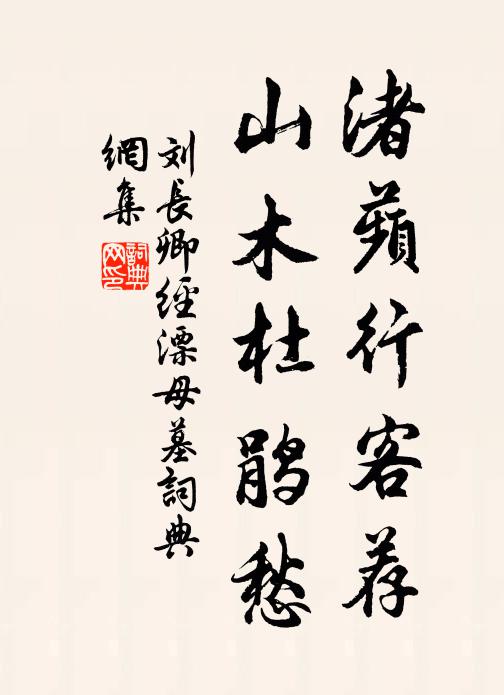 渚蘋行客荐
山木杜鹃愁
刘長卿經漂母墓詞典
網集
詞典
网印